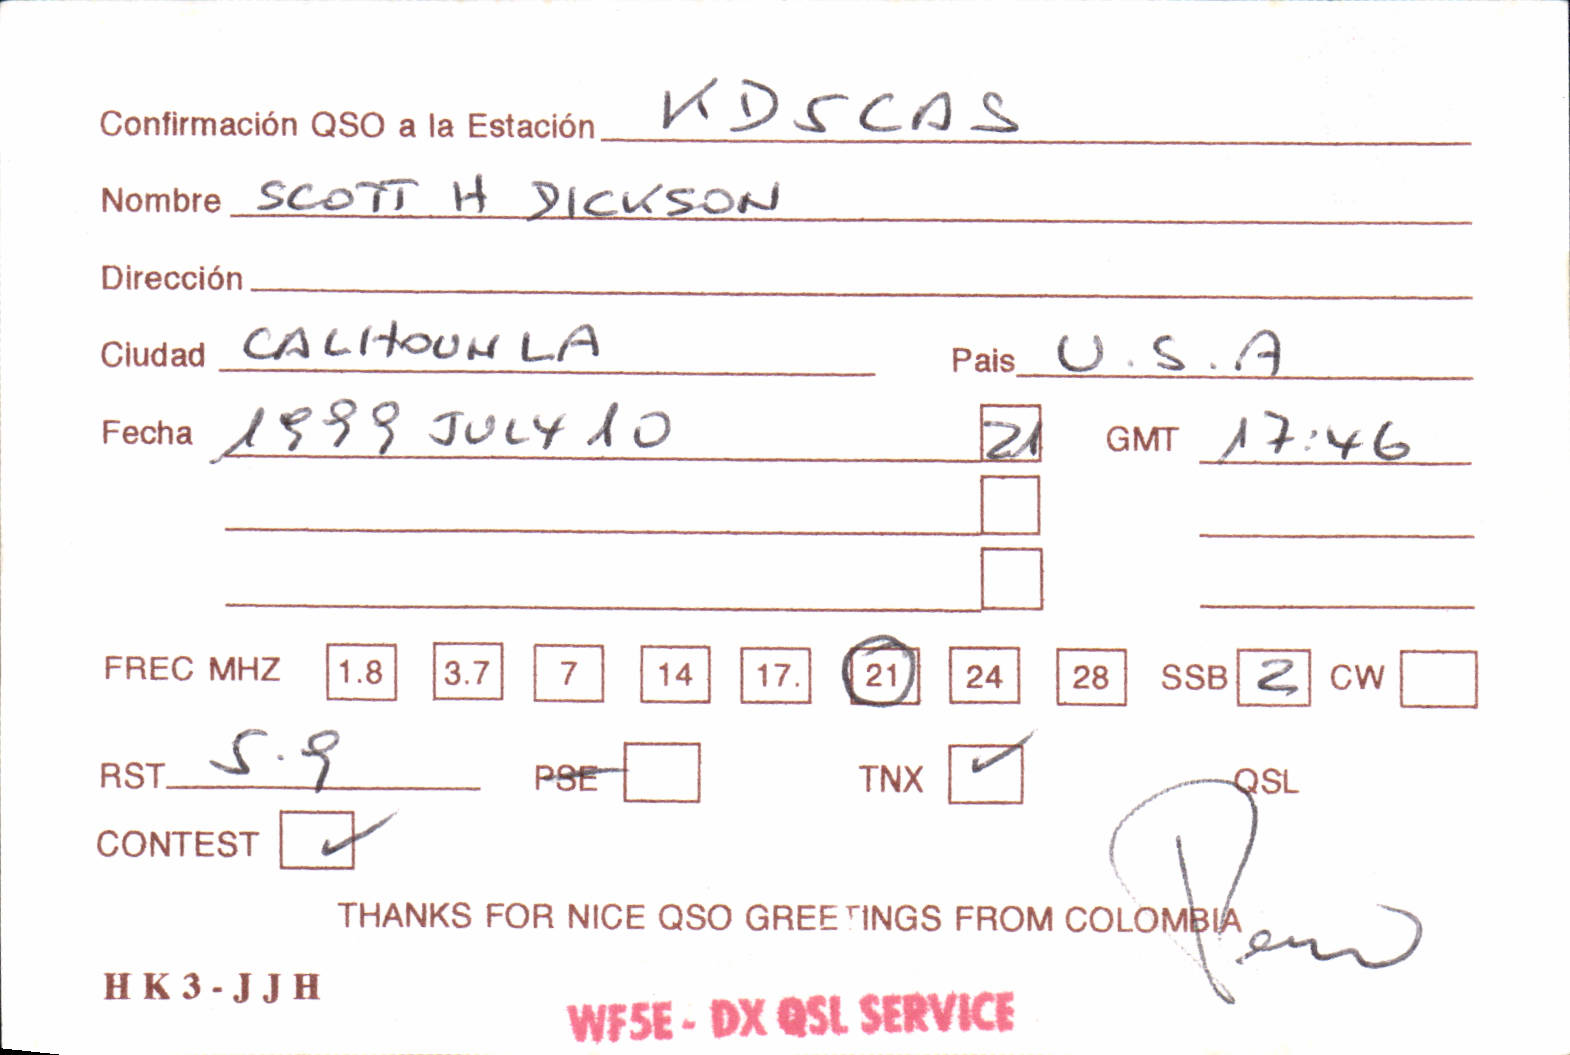 Confirmación QSO a la Estación KD5CAS
Nombre SCOTT H DICKSON
Dirección
Ciudad CALHOUN LA Pais U.S.A
Fecha 1999 JULY 10 21 GMT 17:46
FREC MHZ 1.8 3.7 7 14 17. 21 24 28 SSB 2 CW
RST 5.9 PSE TNX ✓ QSL
CONTEST ✓
THANKS FOR NICE QSO GREETINGS FROM COLOMBIA
HK3-JJH
WF5E - DX QSL SERVICE